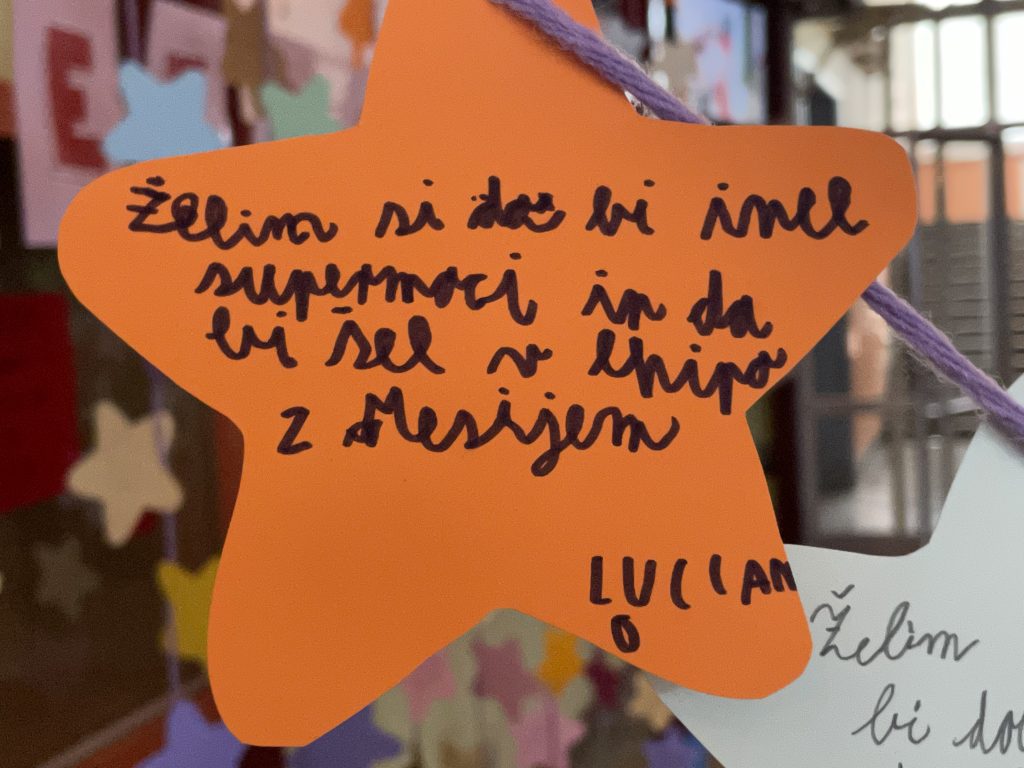 Želim si da bi imel
supermoci in da
bi šel v ekipo
z Mesijem
LUCIAN
O
Želim
bi do
E